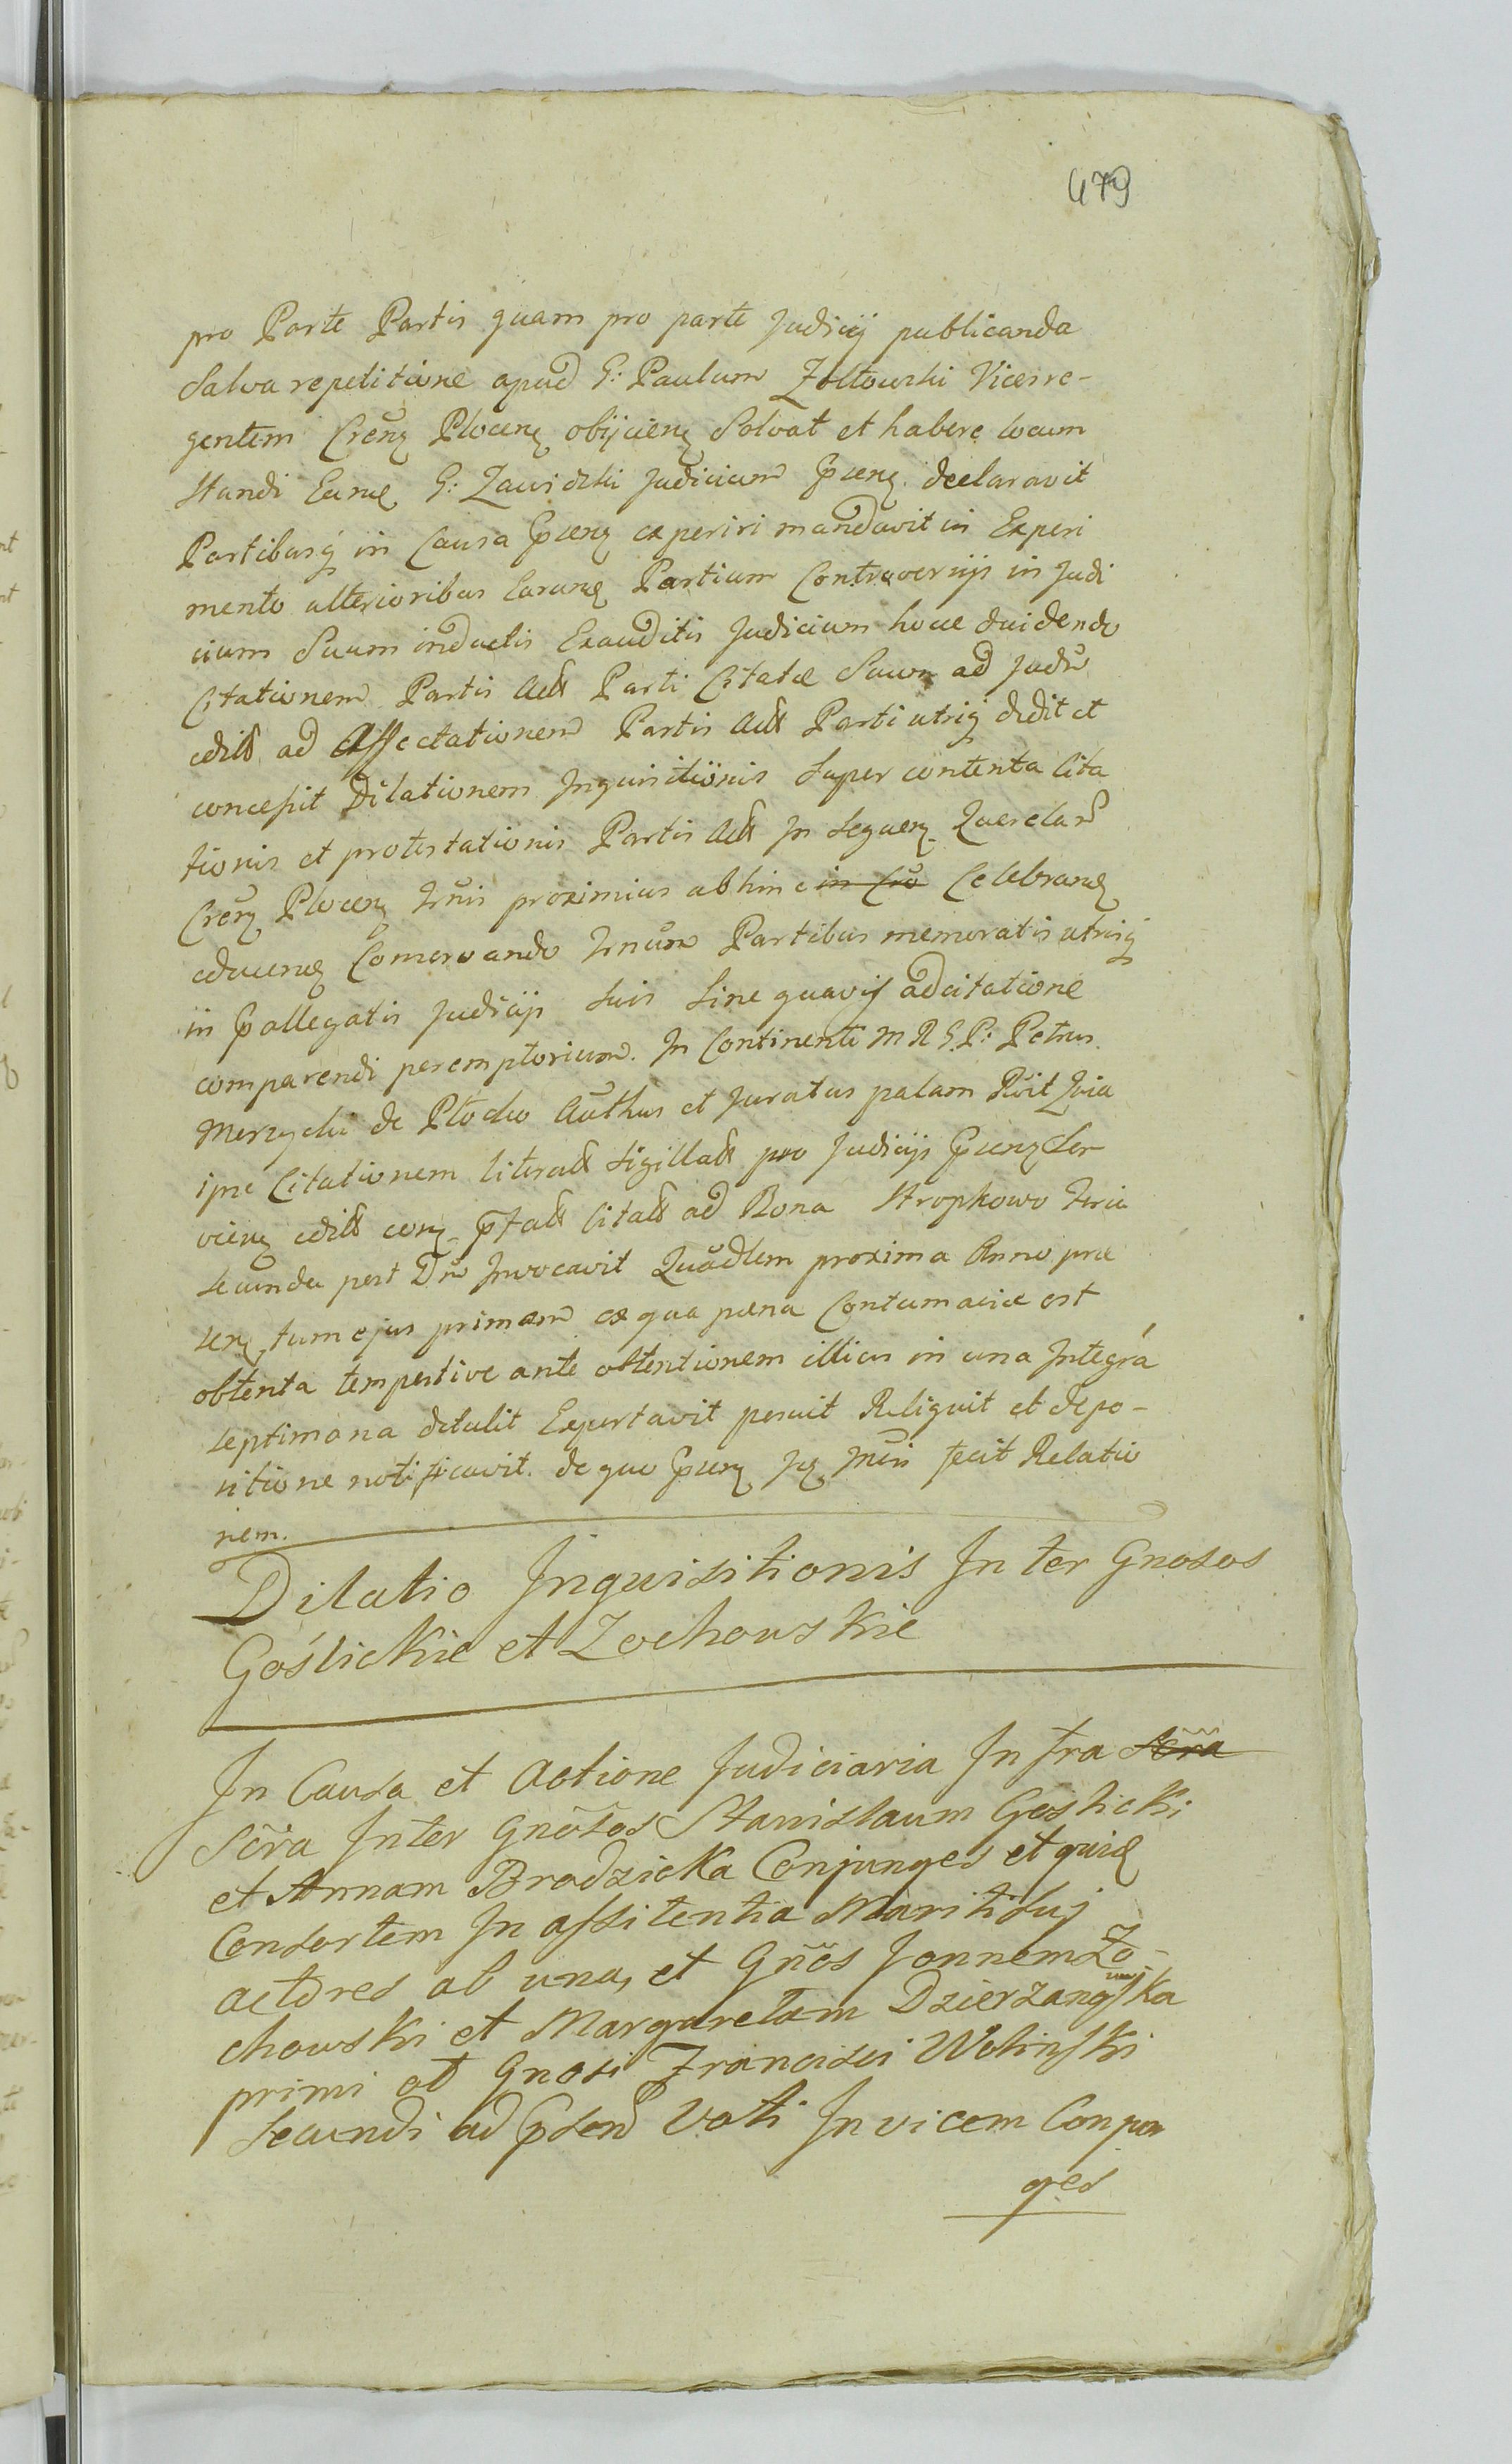 479
pro Parte Partis quam pro parte Judicij publicanda
Salva repetitione apud G: Paulum Żołtowski Vicesre-
gentem Crens Plocens obijciens Solvat et habere locum
standi Eund G: Zawidzki Judicium pns declaravit
Partibusq in Causa pns experiri mandavit in Experi
mento ulterioribus Earund Partium Controversijs in Judi
cium Suum inductis Exauditis Judicium hocce decidendo
Citationem Partis Act Parti Citatæ Suum ad Judm
edit ad Affectationem Partis Act Parti utriq dedit et
concessit Dilationem Inquisitionis super contenta Cita
tionis et protestationis Partis Act In sequen Querelarm
Crens Plocens Trnis proximius abhinc in Cro Celebrand
educend Conservando Trnum Partibus memoratis utrisq
in pallegatis Judicijs suis sine quavis adcitatione
comparendi peremptorium. In Continenti M R G. P: Petrus
Merzycki de Płocko Authus et Juratus palam Rcit Quia
ipse Citationem literat sigillat pro Judicijs pns Ser
viens edit cong ptat Citat ad Bona Stropkowo Feria
secunda post Dn Invocavit Quadlem proxima Anno præ
sen, tum ejus primam ex qua pæna Contumaciæ est
obtenta tempestive ante obtentionem illius in una Integrá
septimana detulit Exportavit posuit Reliquit et depo-
sitione notificavit. de quo pns Jus Min fecit Relatio
nem.
Dilatio Inquisitionis Inter Gnosos
Gośłickie et Zochowskie
In Causa et Actione Judiciaria Infra Scra
Scra Inter Gnosos Stanislaum Goslicki
et Annam Brodzicka Conjunges et quid
Consortem In assitentia Mariti Suj
actores ab una, et Gnos Joannem Zo-
chowski et Margaretam Dzierzanowska
primi at Gnosi Francisci Wolinski
Secundi ad psend Voti Invicem Conjun
ges